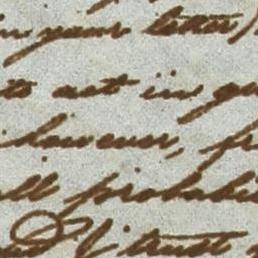 in your letter)
to act in
however, fr
all probabi
I trust